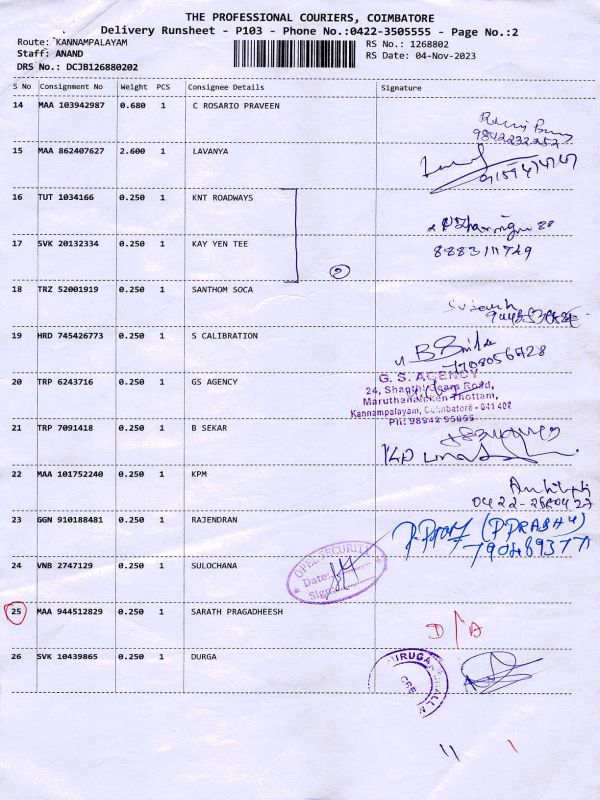 THE PROFESSIONAL COURIERS, COIMBATORE
Delivery Runsheet - P103 - Phone No.:0422-3505555 - Page No.:2
Route: KANNAMPALAYAM
RS No.: 1268802
Staff: ANAND
RS Date: 04-Nov-2023
DRS No.: DCJB126880202
S No Consignment No Weight PCS Consignee Details Signature
14 MAA 103942987 0.680 1 C ROSARIO PRAVEEN
9842232252
15 MAA 862407627 2.600 1 LAVANYA
16 TUT 1034166 0.250 1 KNT ROADWAYS
17 SVK 20132334 0.250 1 KAY YEN TEE
2
18 TRZ 52001919 0.250 1 SANTHOM SOCA
19 HRD 745426773 0.250 1 S CALIBRATION
7708056728
20 TRP 6243716 0.250 1 GS AGENCY
G. S. AGENCY
Road,
Thottam,
Kannampalayam, Coimbatore - 641 402
21 TRP 7091418 0.250 1 B SEKAR
22 MAA 101752240 0.250 1 KPM
23 GGN 910188481 0.250 1 RAJENDRAN
(P PRABHU)
24 VNB 2747129 0.250 1 SULOCHANA
SECURITY
Date:
Sign
25 MAA 944512829 0.250 1 SARATH PRAGADHEESH
D/A
26 SVK 10439865 0.250 1 DURGA